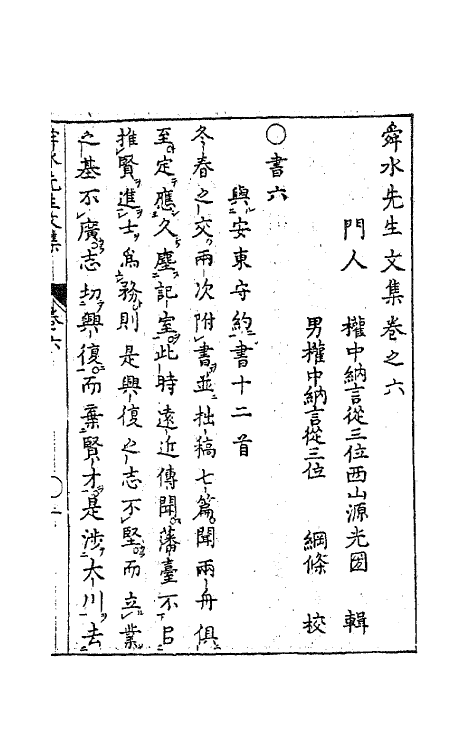 舜水先生文集卷之六
門人 權中納言從三位西山源光圀 輯
男權中納言從三位 綱條 校
○書六
與安東守約書十二首
冬春之交兩次附書並拙稿七篇聞兩舟俱
至定應久塵記室此時遠近傳聞藩臺不以
推賢進士為務則是興復之志不堅而立業
之基不廣志切興復而棄賢才是涉大川去
舜水先生文集 卷六 ○一